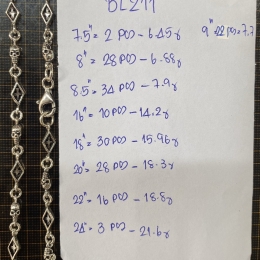 BL211
7.5" = 2 PCS - 6.45g
9" = 22 PCS = 7.7
8" = 28 PCS - 6.88g
8.5" = 34 PCS - 7.9g
16" = 10 PCS - 14.2g
18" = 30 PCS - 15.96g
20" = 28 PCS - 18.3g
22" = 16 PCS - 18.8g
24" = 3 PCS - 21.6g